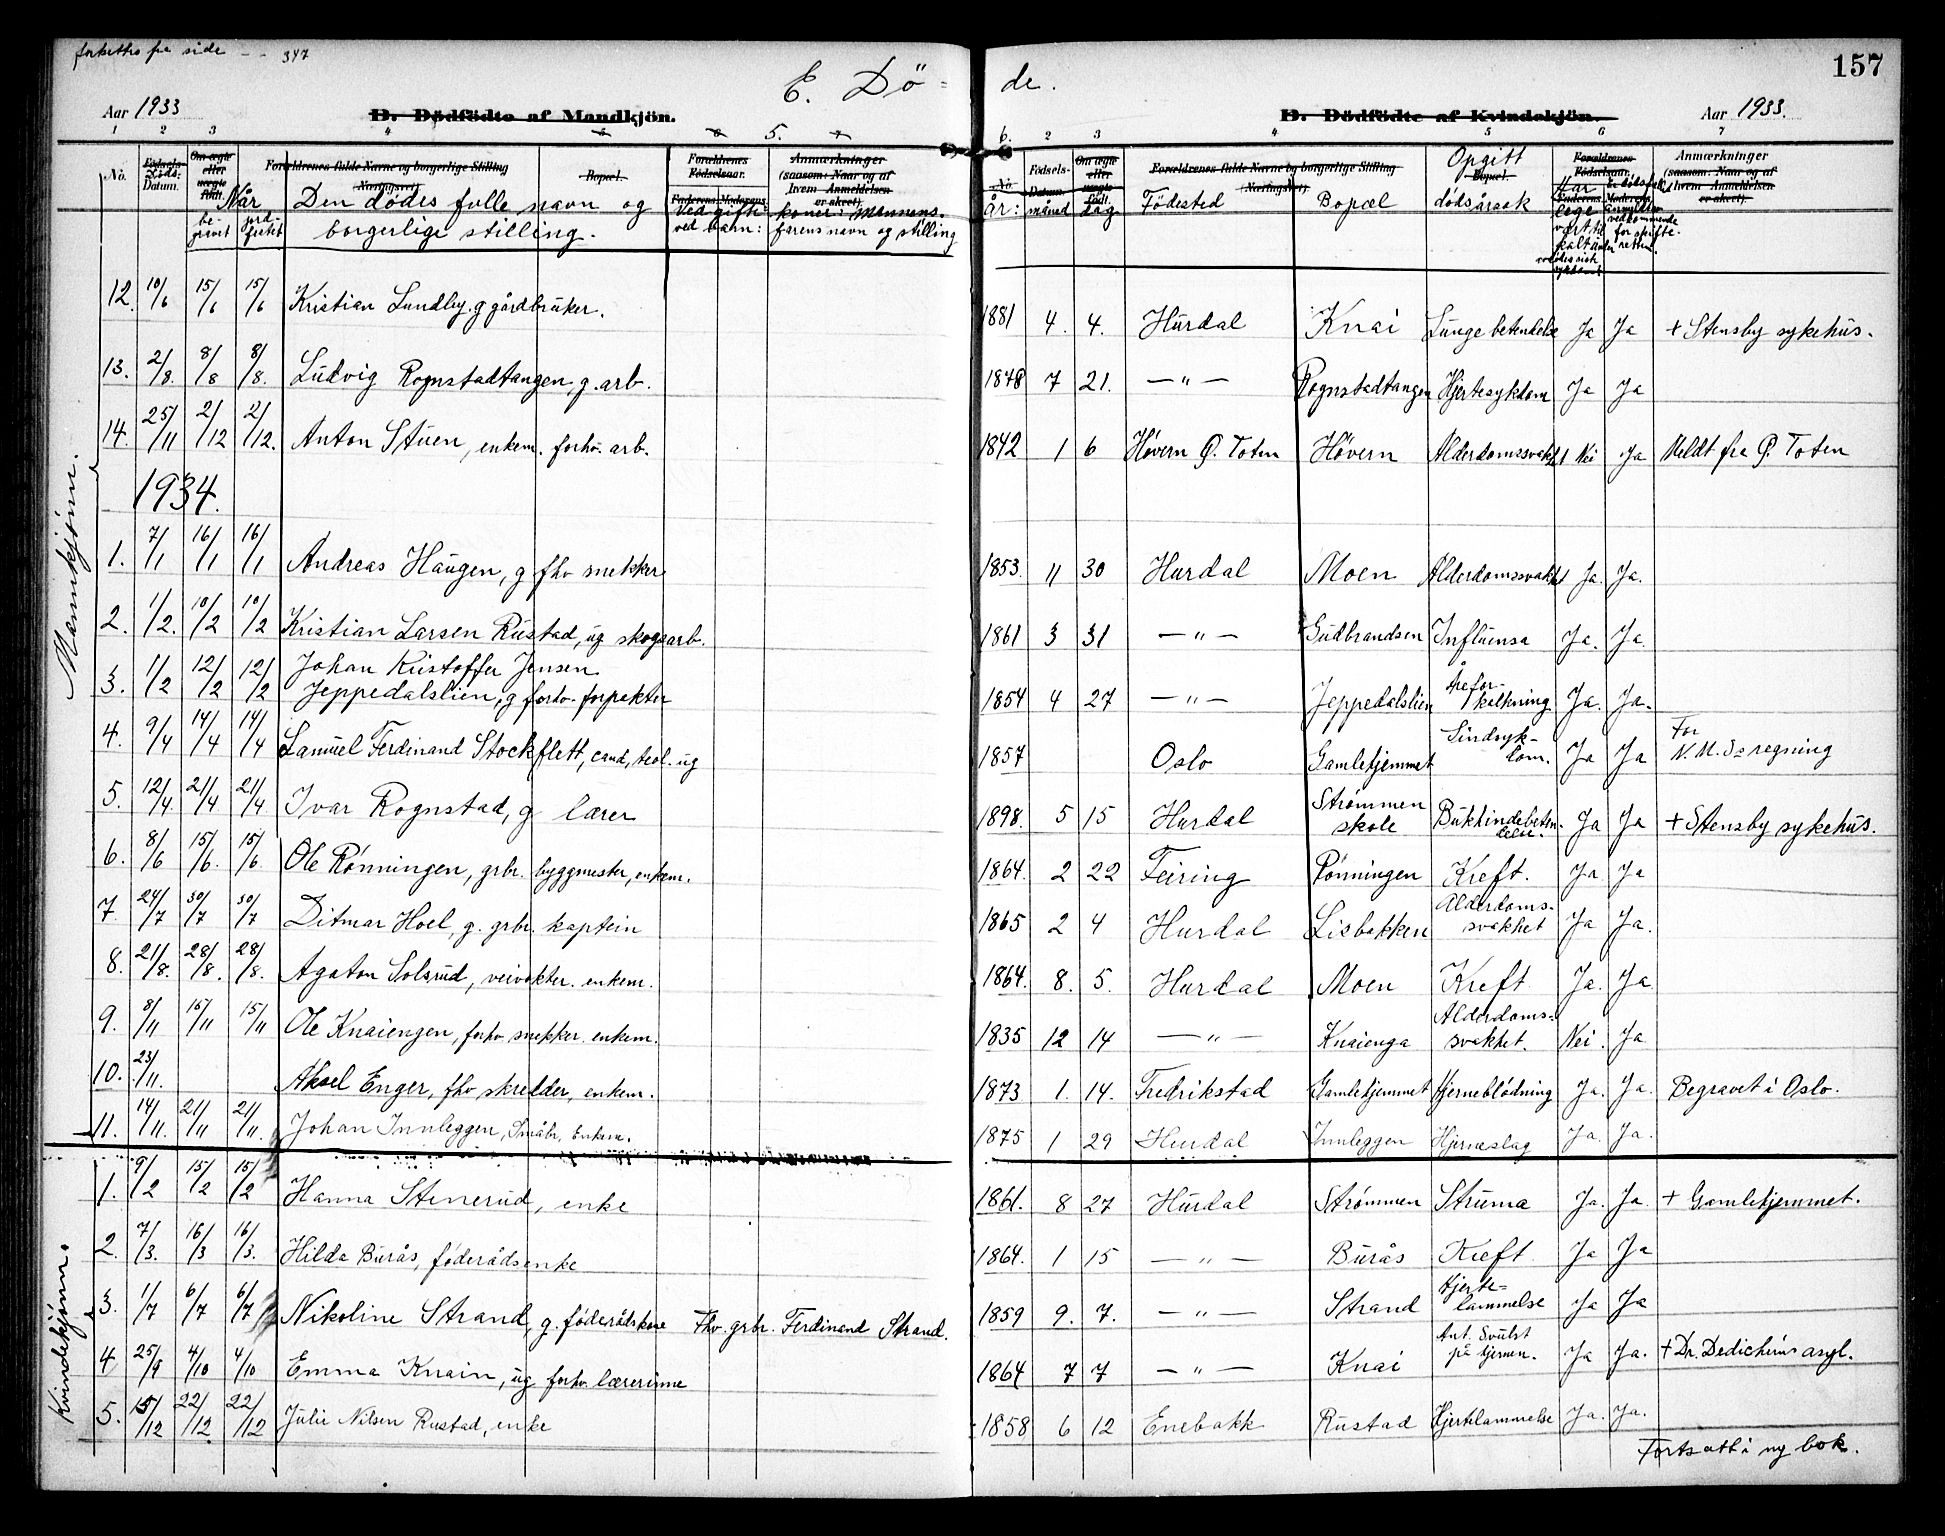 157
E. Dö = de.
Aar 1933
D. Dödfödte af Mandkjön.
D. Dödfödte af Kvindekjön.
Aar 1933.
1 2 3 4 5. 6. 2 3 4 5 6 7
No. Fødsels- Datum. Når begravet jordfestet Den dødes fulle navn og borgerlige stilling. Ved gifte koner: mannens. ved barn: farens navn og stilling
år: måned dag Födested Bopæl Opgitt dödsårsak Anmærkninger
Mannkjønn.
12. 10/6 15/6 15/6 Kristian Lundby. g gårdbruker. 1881 4. 4. Hurdal Knai Lungebetendelse Ja Ja + Stensby sykehus.
13. 2/8. 8/8 8/8. Ludvig Rognstadtangen, g. arb. 1848 7 21. — " — Rognstadtangen Hjertesykdom Ja Ja
14. 25/11 2/12 2/12. Anton Stuen, enkem. forhv. arb. 1842 1 6 Høvern Ø. Toten Høvern Alderdomssvakht Nei Ja Meldt fra Ø. Toten
1934.
1. 7/1 16/1 16/1 Andreas Haugen, g fhv snekker 1853. 11 30 Hurdal Moen Alderdomssvakht Ja. Ja.
2. 1/2. 10/2 10/2 Kristian Larsen Rustad, ug skogsarb. 1861 3 31 — " — Gudbrandsen Influensa Ja. Ja.
3. 1/2 12/2 12/2 Johan Kristoffer Jensen Jeppedalslien, g forhv. forpakter 1854 4 27 — " — Jeppedalslien Åreforkalkning Ja. Ja.
4. 9/4 14/4 14/4 Samuel Ferdinand Stockflett, cand, teol. ug 1857 Oslo Gamlehjemmet Sindsykdom. Ja Ja For N.M.s regning
5. 12/4. 21/4 21/4. Ivar Rognstad, g lærer 1898. 5 15 Hurdal Strømmen skole Bukhindebetendelse Ja Ja + Stensby sykehus.
6. 8/6 15/6. 15/6. Ole Rønningen, grbr. byggmester, enkem. 1864. 2 22 Feiring Rønningen Kreft. Ja Ja
7. 24/7 30/7 30/7 Ditmar Hoel, g. grbr. kaptein 1865 2 4 Hurdal Lisbakken Alderdomssvakhet Ja Ja.
8. 21/8. 28/8. 28/8. Agaton Solsrud, veivokter. enkem. 1864. 8. 5. Hurdal Moen Kreft Ja. Ja.
9. 8/11 15/11 15/11 Ole Knaiengen, forhv snekker. enkem. 1835 12 14 — " — Knaienga Alderdomssvakhet. Nei. Ja
10. 23/11. Aksel Enger, fhv skredder, enkem. 1873 1. 14. Fredrikstad Gamlehjemmet Hjerneblödning Ja. Ja. Begravet i Oslo.
11. 14/11. 21/11 21/11. Johan Innleggen, Småbr. Enkem. 1875 1 29 Hurdal Innleggen Hjerneslag Ja. Ja.
Kvindekjønn.
1. 9/2 15/2 15/2 Hanna Stenerud, enke 1861. 8 27 Hurdal Strømmen Struma Ja. Ja. + Gamlehjemmet.
2. 7/3. 16/3 16/3. Hilda Burås, føderådsenke 1864. 1 15 — " — Burås Kreft Ja Ja
3. 1/7 6/7 6/7 Nikoline Strand, g. føderådskone Fhv. grbr. Ferdinand Strand. 1859 9. 7. — " — Strand Hjertelammelse Ja Ja
4 25/9 4/10 4/10 Emma Knain, ug forhv. lærerinne 1864 7 7 — " — Knai Ant. Svulst på hjernen. Ja Ja. + Dr. Dedichens asyl.
5. 15/12 22/12. 22/12 Julie Nilsen Rustad, enke 1858 6 12 Enebakk Rustad Hjertelammelse Ja. Ja.
Fortsatt i ny bok.